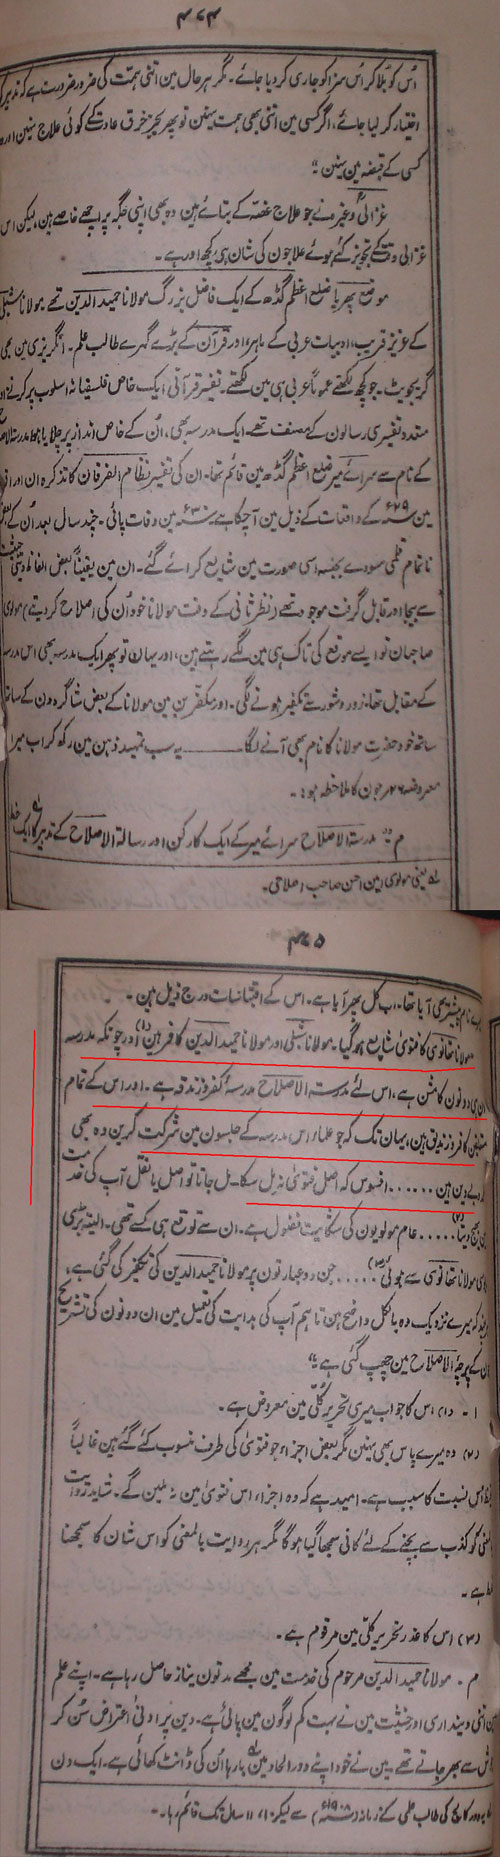 ۴۷۴
اُس کو بُلا کر اُس سزا کو جاری کر دیا جائے۔ مگر ہر حال مین اتنی ہمت کی ضرور ضرورت ہے کہ تدبیر کو
اختیار کر لیا جائے، اگر کسی مین اتنی بھی ہمت نہین تو پھر بجز خرق عادت کے کوئی علاج نہین اور وہ
کسی کے قبضہ مین نہین :"
غزالیؒ وغیرہ نے جو علاج غصّہ کے بتائے ہین وہ بھی اپنی جگہ پر اچھے خاصے ہین لیکن اس
غزالی وقت کے تجویز کئے ہوئے علاجون کی شان ہی کچھ اور ہے۔
موضع پھریا ضلع اعظم گڈھ کے ایک فاضل بزرگ مولانا حمید الدین تھے مولانا شبلی
کے عزیز قریب، ادبیات عربی کے ماہر، اور قرآن کے بڑے گہرے طالب علم۔ انگریزی مین بھی
گریجویٹ۔ جو کچھ لکھتے عموماً عربی ہی مین لکھتے۔ تفسیر قرآنی ایک خاص فلسفیانہ اسلوب پر کرتے اور
متعدد تفسیری رسالون کے مصنف تھے۔ ایک مدرسہ بھی، اُن کے خاص انداز پر چلایا ہوا مدرستہ الاصلاح
کے نام سے سرائے میر ضلع اعظم گڈھ مین قائم تھا۔ ان کی تفسیر نظام الفرقان کا تذکرہ ان اوراق
مین ۲۹ء کے واقعات کے ذیل مین آچکا ہے ۳۰ء مین وفات پائی۔ چند سال بعد اُن کے بعض
ناتمام قلمی مسودے بجنسہ اسی صورت مین شایع کرائے گئے۔ ان مین یقیناً بعض الفاظ دینی حیثیت
سے بیجا اور قابل گرفت موجود تھے (نظر ثانی کے وقت مولانا خود اُن کی اصلاح کر دیتے) مولوی
صاحبان تو ایسے موقع کی تاک ہی مین لگے رہتے ہین، اور یہان تو پھر ایک مدرسہ بھی اس مدرسہ
کے مقابل تھا، زور و شور سے تکفیر ہونے لگی۔ اور مکفّرین مین مولانا کے بعض شاگردون کے ساتھ
ساتھ خود حضرت مولانا کا نام بھی آنے لگا ــــــــ یہ سب تمہید ذہن مین رکھ کر اب میرا
معروضہ ۲۶ جون کا ملاحظہ ہو:۔
م۔ " مدرستہ الاصلاح سرائے میر کے ایک کارکن اور رسالہ الاصلاح کے مدیر کا ایک خط
لہ یعنی مولوی امین احسن صاحب اصلاحی۔
۴۷۵
نام پیشتر بھی آیا تھا۔ اب کل پھر آیا ہے۔ اس کے اقتباسات درج ذیل ہین۔
مولانا تھانوی کا فتویٰ شایع ہو گیا۔ مولانا شبلی اور مولانا حمید الدین کافر ہین (۱) اور چونکہ مدرسہ
ان ہی دونون کا مشن ہے، اس لئے مدرستہ الاصلاح مدرسہ کفر و زندقہ ہے۔ اور اس کے تمام
کافر و زندیق ہین، یہان تک کہ جو علماء اس مدرسہ کے جلسون مین شرکت کرین وہ بھی
بے دین ہین ...... افسوس کہ اصل فتویٰ نہ مل سکا۔ مل جاتا تو اصل یا نقل آپ کی خدمت
مین بھیج دیتا (۲) ..... عام مولویون کی شکایت فضول ہے۔ ان سے توقع ہی کسے تھی۔ البتہ بڑی
مولانا تھانوی سے ہوئی (۳) ..... جن دو عبارتون پر مولانا حمید الدین کی تکفیر کی گئی ہے،
میرے نزدیک وہ بالکل واضح ہین تاہم آپ کی ہدایت کی تعمیل مین ان دونون کی تشریح
ان کے پرچۂ الاصلاح مین چھپ گئی ہے :"
ا۔ (۱) اس کا جواب میری تحریر کُلّی مین معروض ہے۔
(۲) وہ میرے پاس بھی نہین مگر بعض اجزاء جو فتویٰ کی طرف منسوب کئے گئے ہین غالباً
اس نسبت کا سبب ہے۔ امید ہے کہ وہ اجزاء اس فتویٰ مین نہ ملین گے۔ شاید روایت
بالمعنی کو کذب سے بچنے کے لئے کافی سمجھا گیا ہو گا مگر ہر روایت بالمعنی کو اس شان کا سمجھنا
ہے۔
(۳) اس کا عذر تحریر کُلّی مین مرقوم ہے۔
م۔ مولانا حمید الدین مرحوم کی خدمت مین مجھے مدتون نیاز حاصل رہا ہے۔ اپنے علم
مین اتنی دینداری اور خشیت مین نے بہت کم لوگون مین پائی ہے۔ دین پر ادنیٰ اعتراض سُن کر
سے بھر جاتے تھے۔ مین نے خود اپنے دور الحاد مین بارہا ان کی ڈانٹ کھائی ہے۔ ایک دن
یہ دور کالج کی طالب علمی کے زمانہ (۱۹۰۸ء) سے لیکر ۱۰، ۱۱ سال تک قائم رہا۔